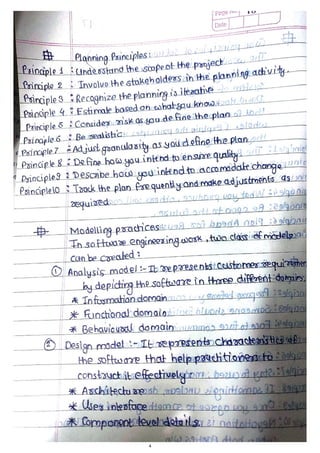 Page No.
Date
Planning Principles:
Principle 1 : Understand the scope of the project
Principle 2 : Involve the stakeholders in the planning activity.
Principle 3 : Recognize the planning is iterative
Principle 4 : Estimate based on what you know
Principle 5 : Consider risk as you define the plan
Principle 6 : Be realistic
Principle 7 : Adjust granularity as you define the plan
Principle 8 : Define how you intend to ensure quality
Principle 9 : Describe how you intend to accomodate change
Principle 10 : Track the plan frequently and make adjustments as
required
Modelling practices
In software engineering work, two class of models
can be created :
① Analysis model :- It represents customer requirements
by depicting the software in three different domains.
* Information domain
* Functional domain
* Behavioural domain
② Design model :- It represents characteristics of
the software that help practitioners to
construct it effectively
* Architecture
* User interface
* Component level details.
4